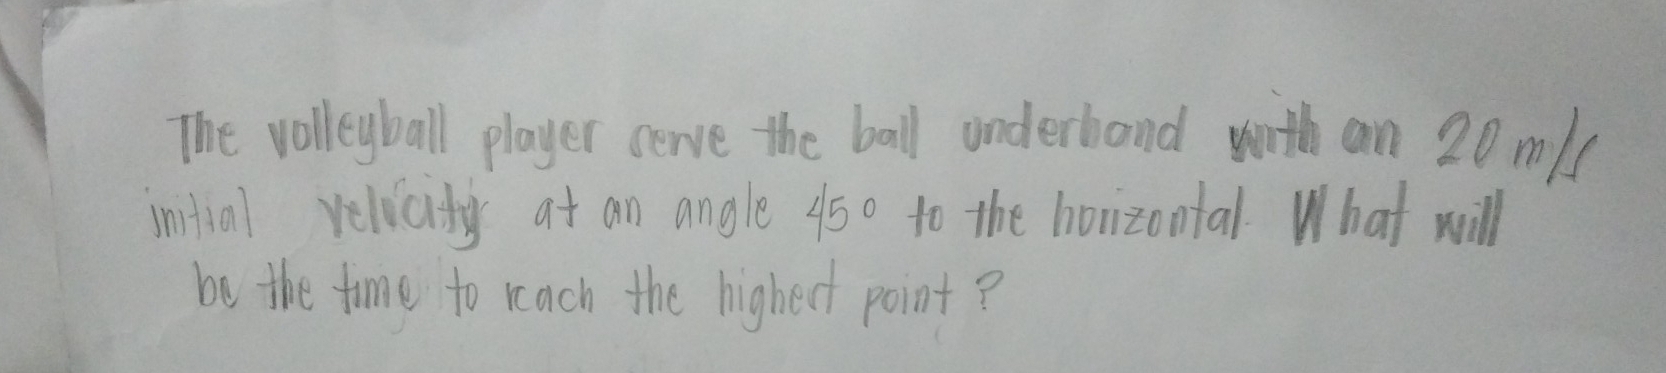 The volleyball player serve the ball underhand with an 20 m/s
initial velocity at an angle 45° to the horizontal. What will
be the time to reach the highest point?